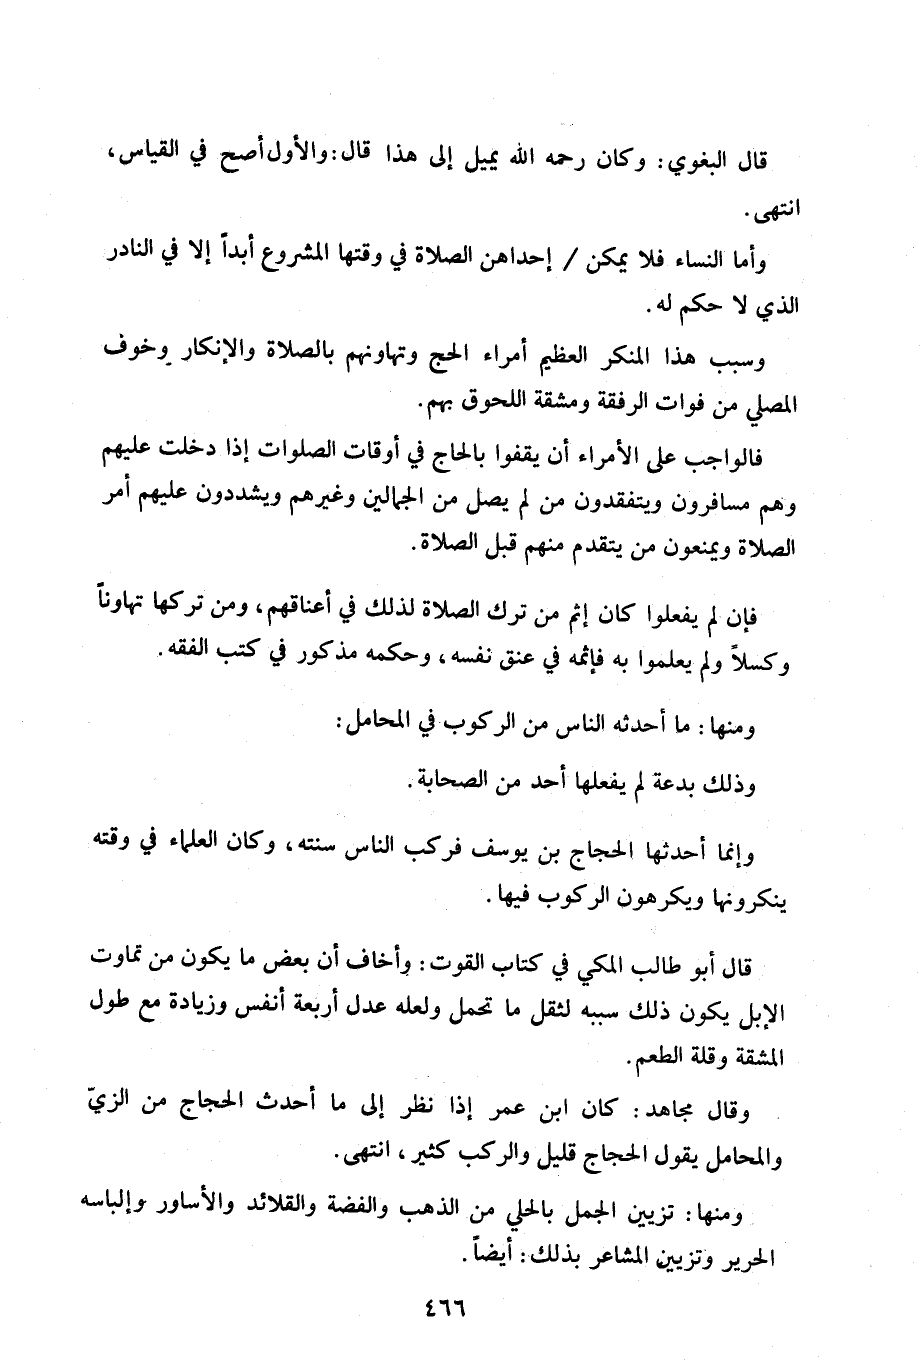 قال البغوي: وكان رحمه الله يميل إلى هذا قال: والأول أصح في القياس،
انتهى.
وأما النساء فلا يمكن / إحداهن الصلاة في وقتها المشروع أبداً إلا في النادر
الذي لا حكم له.
وسبب هذا المنكر العظيم أمراء الحج وتهاونهم بالصلاة والإنكار وخوف
المصلي من فوات الرفقة ومشقة اللحوق بهم.
فالواجب على الأمراء أن يقفوا بالحاج في أوقات الصلوات إذا دخلت عليهم
وهم مسافرون ويتفقدون من لم يصل من الجمالين وغيرهم ويشددون عليهم أمر
الصلاة ويمنعون من يتقدم منهم قبل الصلاة.
فإن لم يفعلوا كان إثم من ترك الصلاة لذلك في أعناقهم، ومن تركها تهاوناً
وكسلاً ولم يعلموا به فإثمه في عنق نفسه، وحكمه مذكور في كتب الفقه.
ومنها: ما أحدثه الناس من الركوب في المحامل:
وذلك بدعة لم يفعلها أحد من الصحابة.
وإنما أحدثها الحجاج بن يوسف فركب الناس سنته، وكان العلماء في وقته
ينكرونها ويكرهون الركوب فيها.
قال أبو طالب المكي في كتاب القوت: وأخاف أن بعض ما يكون من تماوت
الإبل يكون ذلك سببه لثقل ما تحمل ولعله عدل أربعة أنفس وزيادة مع طول
المشقة وقلة الطعم.
وقال مجاهد: كان ابن عمر إذا نظر إلى ما أحدث الحجاج من الزيّ
والمحامل يقول الحجاج قليل والركب كثير، انتهى.
ومنها: تزيين الجمل بالحلي من الذهب والفضة والقلائد والأساور وإلباسه
الحرير وتزيين المشاعر بذلك: أيضاً.
٤٦٦